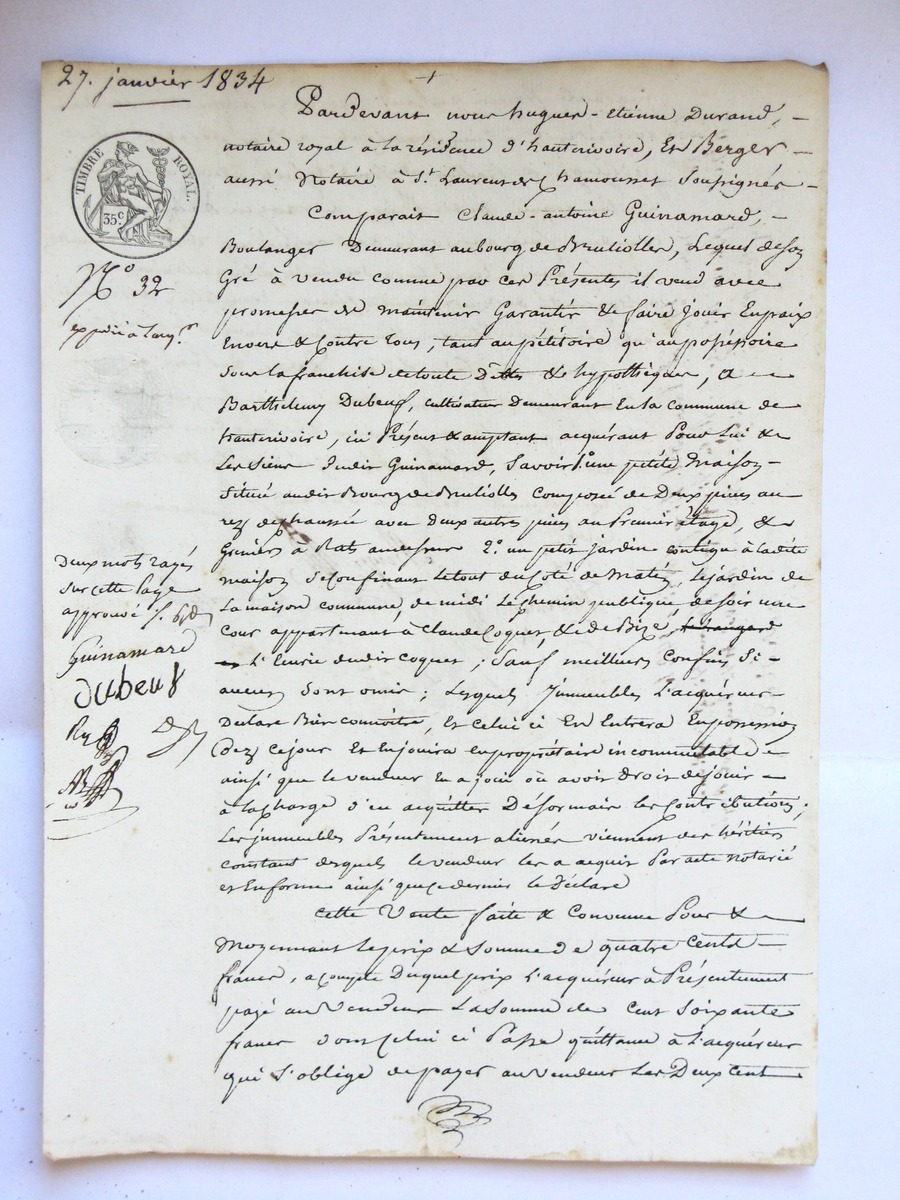 27. janvier 1834
TIMBRE ROYAL.
35 c
No 32
Deux mots rayés
sur cette page
approuvé
Guinamard
dubeuf
Pardevant nous hugues-etienne Durand,
notaire royal à la résidence d'hauterivoire, Et Berger
aussi Notaire à St. Laurent de Chamousset Soussignés
Comparait Claude-antoine Guinamard,
Boulanger Demeurant au bourg de Bruliolles, Lequel de son
Gré à vendu comme par ces Présentes il vend avec
promesses de maintenir Garantir & faire jouir En paix
Envers & Contre Tous, tant au pétitoire qu'au possessoire
sous la franchise de toute Dettes & hypothèques, a
Barthelemy Dubeuf, cultivateur Demeurant En la commune de
hauterivoire, ici Présent & acceptant acquérant Pour Lui &
Les Siens dudit Guinamard, Savoir 1° une petite maison
Située audit Bourg de Brulliolles Composée de Deux pièces au
rez de chaussée avec deux autres pièces au Premier étage, &
Greniers à Rats au dessus 2° un petit jardin contigu à ladite
maison se confinant le tout du Coté de Matin, le jardin de
La maison commune, de midi Le Chemin publique, de soir une
cour appartenant à Claude Coquet, & de Bize,
L'Ecurie dudit Coquet ; Sauf meilleurs confins Si
aucuns Sont omis ; Lesquels Immeubles L'acquéreur
Declare Bien connoitre, Et Celui ci En Entrera En possession
dez ce jour Et En jouira en propriétaire incommutable
ainsi que le vendeur En a joui ou avoir Droit de jouir
à la Charge d'en acquitter Désormais les Contributions ;
Les immeubles Présentement aliénés viennent des héritiers
constant desquels le vendeur les a acquis Par acte notarié
et En forme ainsi que ce dernier le déclare
Cette Vente faite & Convenue Pour &
Moyennant le prix & Somme De quatre Cents
francs, a compte Duquel prix L'acquéreur à Présentement
payé au Vendeur La Somme de Cent Soixante
francs dont Celui ci Passe quittance à L'acquéreur
qui S'oblige de payer au Vendeur Les Deux Cent